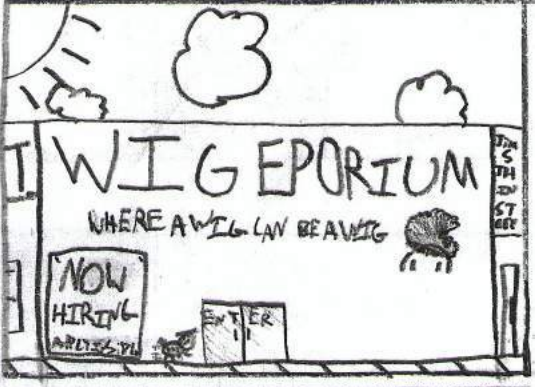 WIG EPORIUM
WHERE A WIG CAN BE A WIG
NOW
HIRING
ENTER
T